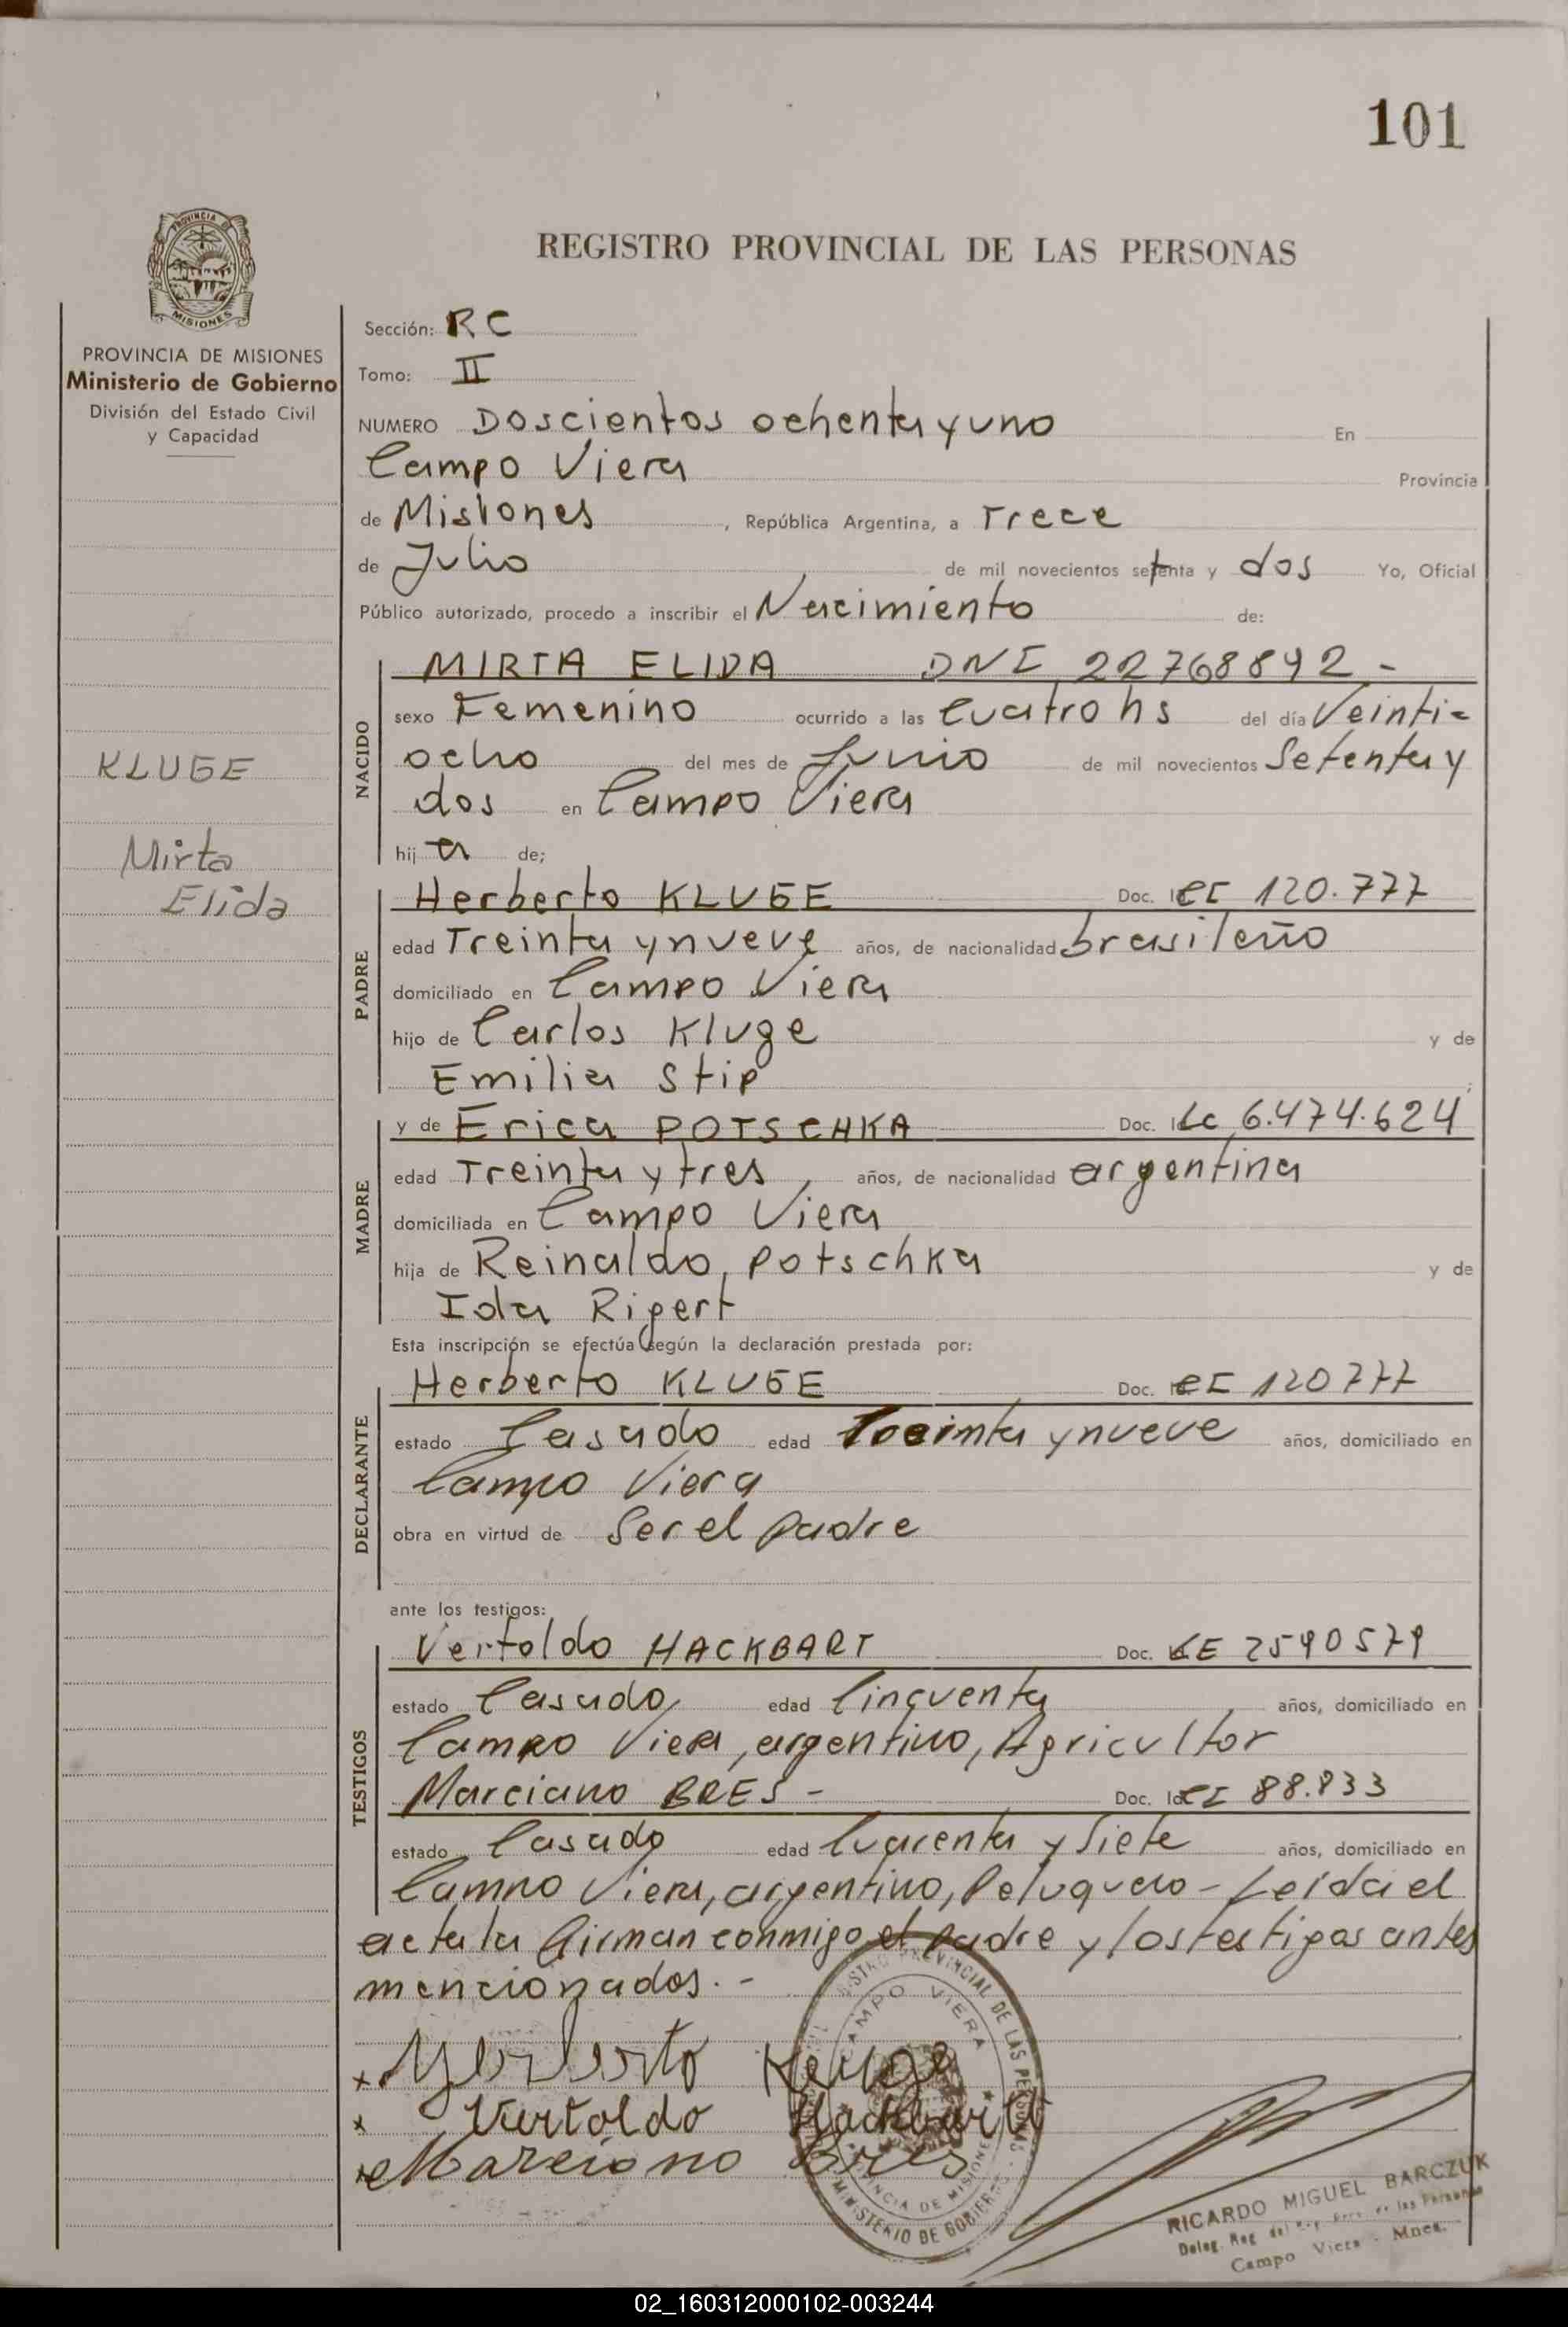 101
PROVINCIA
MISIONES
PROVINCIA DE MISIONES
Ministerio de Gobierno
División del Estado Civil
y Capacidad
KLUGE
Mirta
Elida
REGISTRO PROVINCIAL DE LAS PERSONAS
Sección: RC
Tomo: II
NUMERO Doscientos ochenta y uno En
Campo Viera Provincia
de Misiones, República Argentina, a Trece
de Julio de mil novecientos setenta y dos Yo, Oficial
Público autorizado, procedo a inscribir el Nacimiento de:
NACIDO
MIRTA ELIDA DNI 22768892 -
sexo Femenino ocurrido a las Cuatro hs del día Veinti=
ocho del mes de Junio de mil novecientos Setenta y
dos en Campo Viera
hij a de;
PADRE
Herberto KLUGE Doc. CI 120.777
edad Treinta y nueve años, de nacionalidad brasileño
domiciliado en Campo Viera
hijo de Carlos Kluge y de
Emilia Stip
MADRE
y de Erica POTSCHKA Doc. Id LC 6.474.624
edad Treinta y tres años, de nacionalidad argentina
domiciliada en Campo Viera
hija de Reinaldo Potschka y de
Ida Rigert
Esta inscripción se efectúa según la declaración prestada por:
DECLARANTE
Herberto KLUGE Doc. CI 120777
estado Casado edad Treinta y nueve años, domiciliado en
Campo Viera
obra en virtud de Ser el padre
ante los testigos:
TESTIGOS
Vertoldo HACKBART Doc. LE 2590579
estado Casado edad Cincuenta años, domiciliado en
Campo Viera, argentino, Agricultor
Marciano BRES - Doc. Id CI 88.833
estado Casado edad Cuarenta y Siete años, domiciliado en
Campo Viera, argentino, Peluquero - Leida el
acta la firman conmigo el padre y los testigos antes
mencionados. -
x Herberto Kluge
x Vertoldo Hackbartt
x Marciano Bres
REGISTRO PROVINCIAL DE LAS PERSONAS
CAMPO VIERA
PROVINCIA DE MISIONES
MINISTERIO DE GOBIERNO
RICARDO MIGUEL BARCZUK
Deleg. Reg. del Reg. Prov. de las Personas
Campo Viera - Mnes.
02_160312000102-003244